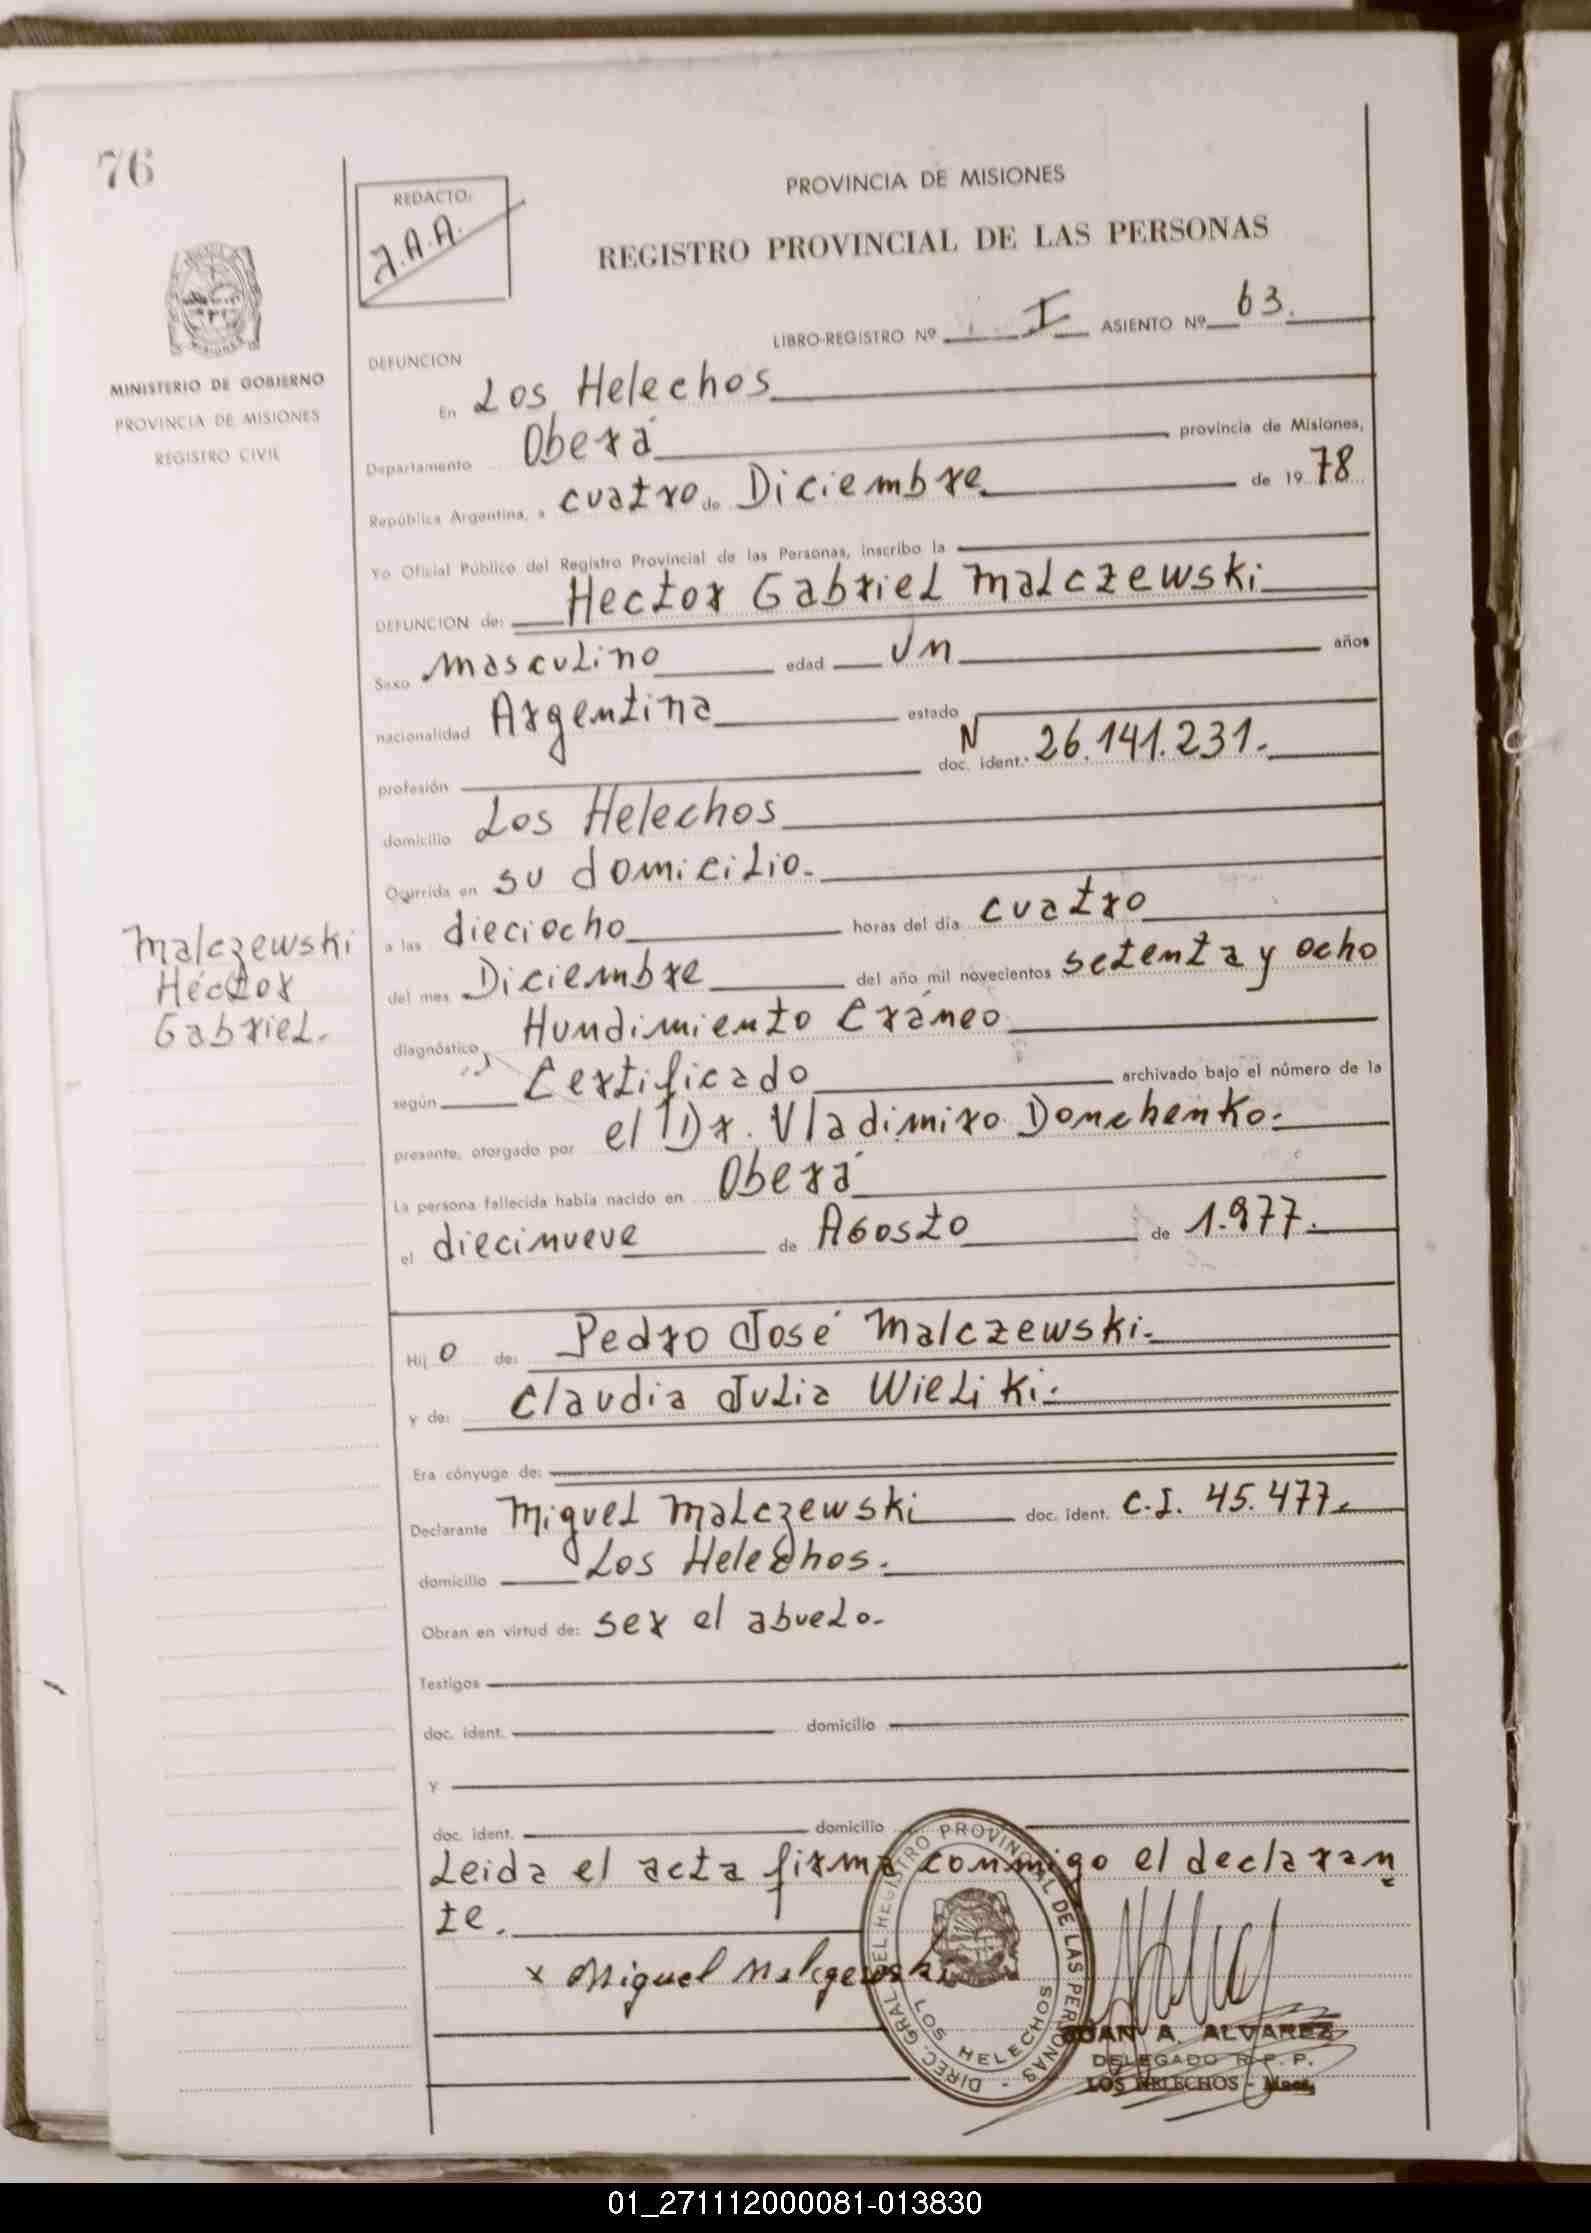 76
REDACTO:
J.A.A.
PROVINCIA DE MISIONES
REGISTRO PROVINCIAL DE LAS PERSONAS
LIBRO-REGISTRO Nº I ASIENTO Nº 63.
MINISTERIO DE GOBIERNO
PROVINCIA DE MISIONES
REGISTRO CIVIL
DEFUNCION
En Los Helechos
Departamento Oberá provincia de Misiones,
República Argentina, a cuatro de Diciembre de 19 78
Yo Oficial Público del Registro Provincial de las Personas, inscribo la
DEFUNCION de: Hector Gabriel Malczewski
Sexo masculino edad Un años
nacionalidad Argentina estado
profesión doc. ident. N 26.141.231.-
domicilio Los Helechos
Ocurrida en su domicilio.
a las dieciocho horas del día cuatro
del mes Diciembre del año mil novecientos setenta y ocho
diagnóstico Hundimiento Cráneo
según Certificado archivado bajo el número de la
presente, otorgado por el Dr. Vladimiro Donchenko.
La persona fallecida había nacido en Oberá
el diecinueve de Agosto de 1.977.
Malczewski
Héctor
Gabriel.
Hij o de: Pedro José Malczewski.
y de: Claudia Julia Wieliki.
Era cónyuge de:
Declarante Miguel Malczewski doc. ident. C.I. 45.477.
domicilio Los Helechos.
Obran en virtud de: ser el abuelo.
Testigos
doc. ident. domicilio
y
doc. ident. domicilio
Leida el acta firma conmigo el declaran
te.
x Miguel Malczewski
DIREC. GRAL. DEL REGISTRO PROVINCIAL DE LAS PERSONAS -
LOS HELECHOS
JUAN A. ALVAREZ
DELEGADO R. P. P.
LOS HELECHOS - Mnes.
01_271112000081-013830